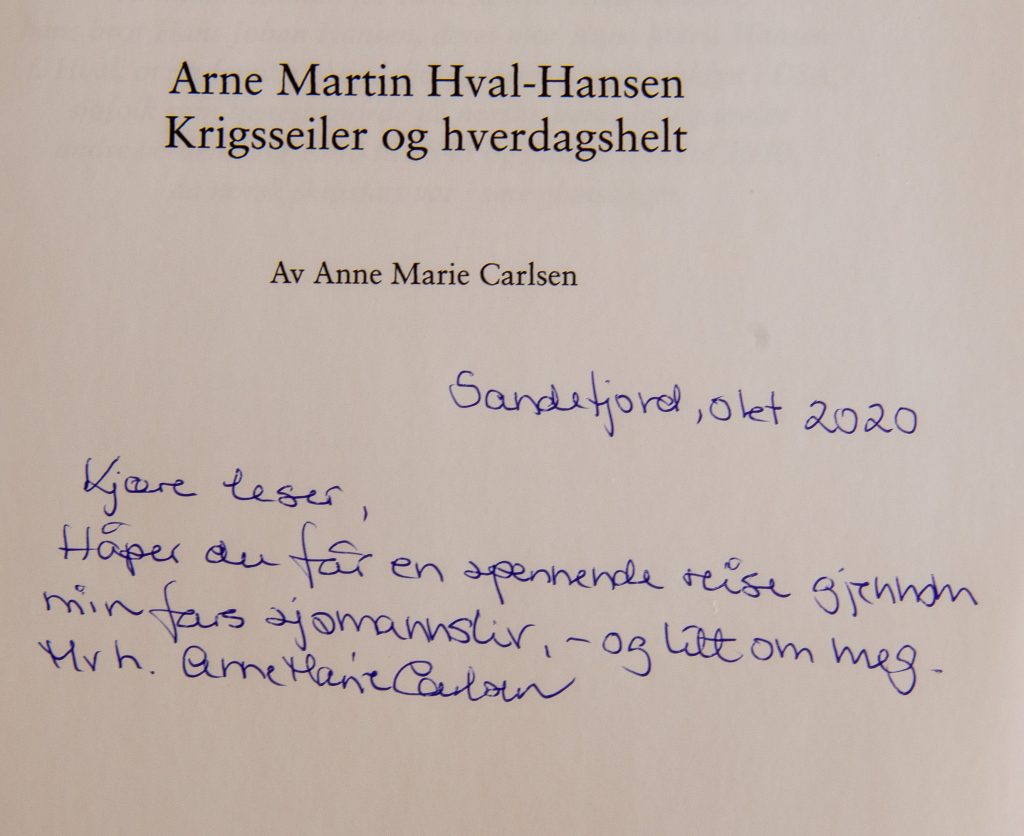 Arne Martin Hval-Hansen
Krigsseiler og hverdagshelt
Av Anne Marie Carlsen
Sandefjord, okt 2020
Kjære leser,
Håper du får en spennende reise gjennom
min fars sjømannsliv, - og litt om meg.
Mvh. Anne Marie Carlsen